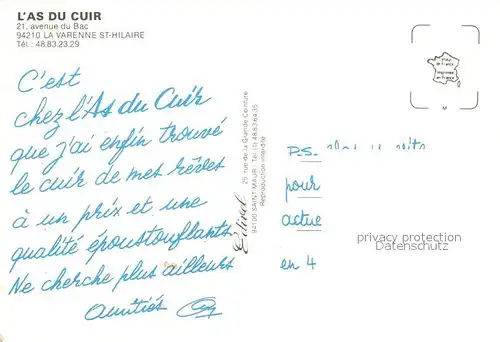 L'AS DU CUIR
21, avenue du Bac
94210 LA VARENNE ST-HILAIRE
Tél.: 48.83.23.29
C'est
chez l'As du Cuir
que j'ai enfin trouvé
le cuir de mes rêves
à un prix et une
qualité époustouflants
Ne cherche plus ailleurs
Amitiés
Edirel
25, rue de la Grande Ceinture
94100 SAINT-MAUR - Tél. (1) 48.83.64.35
Reproduction interdite
M
P.S.
pour
actue
en 4
privacy protection
Datenschutz